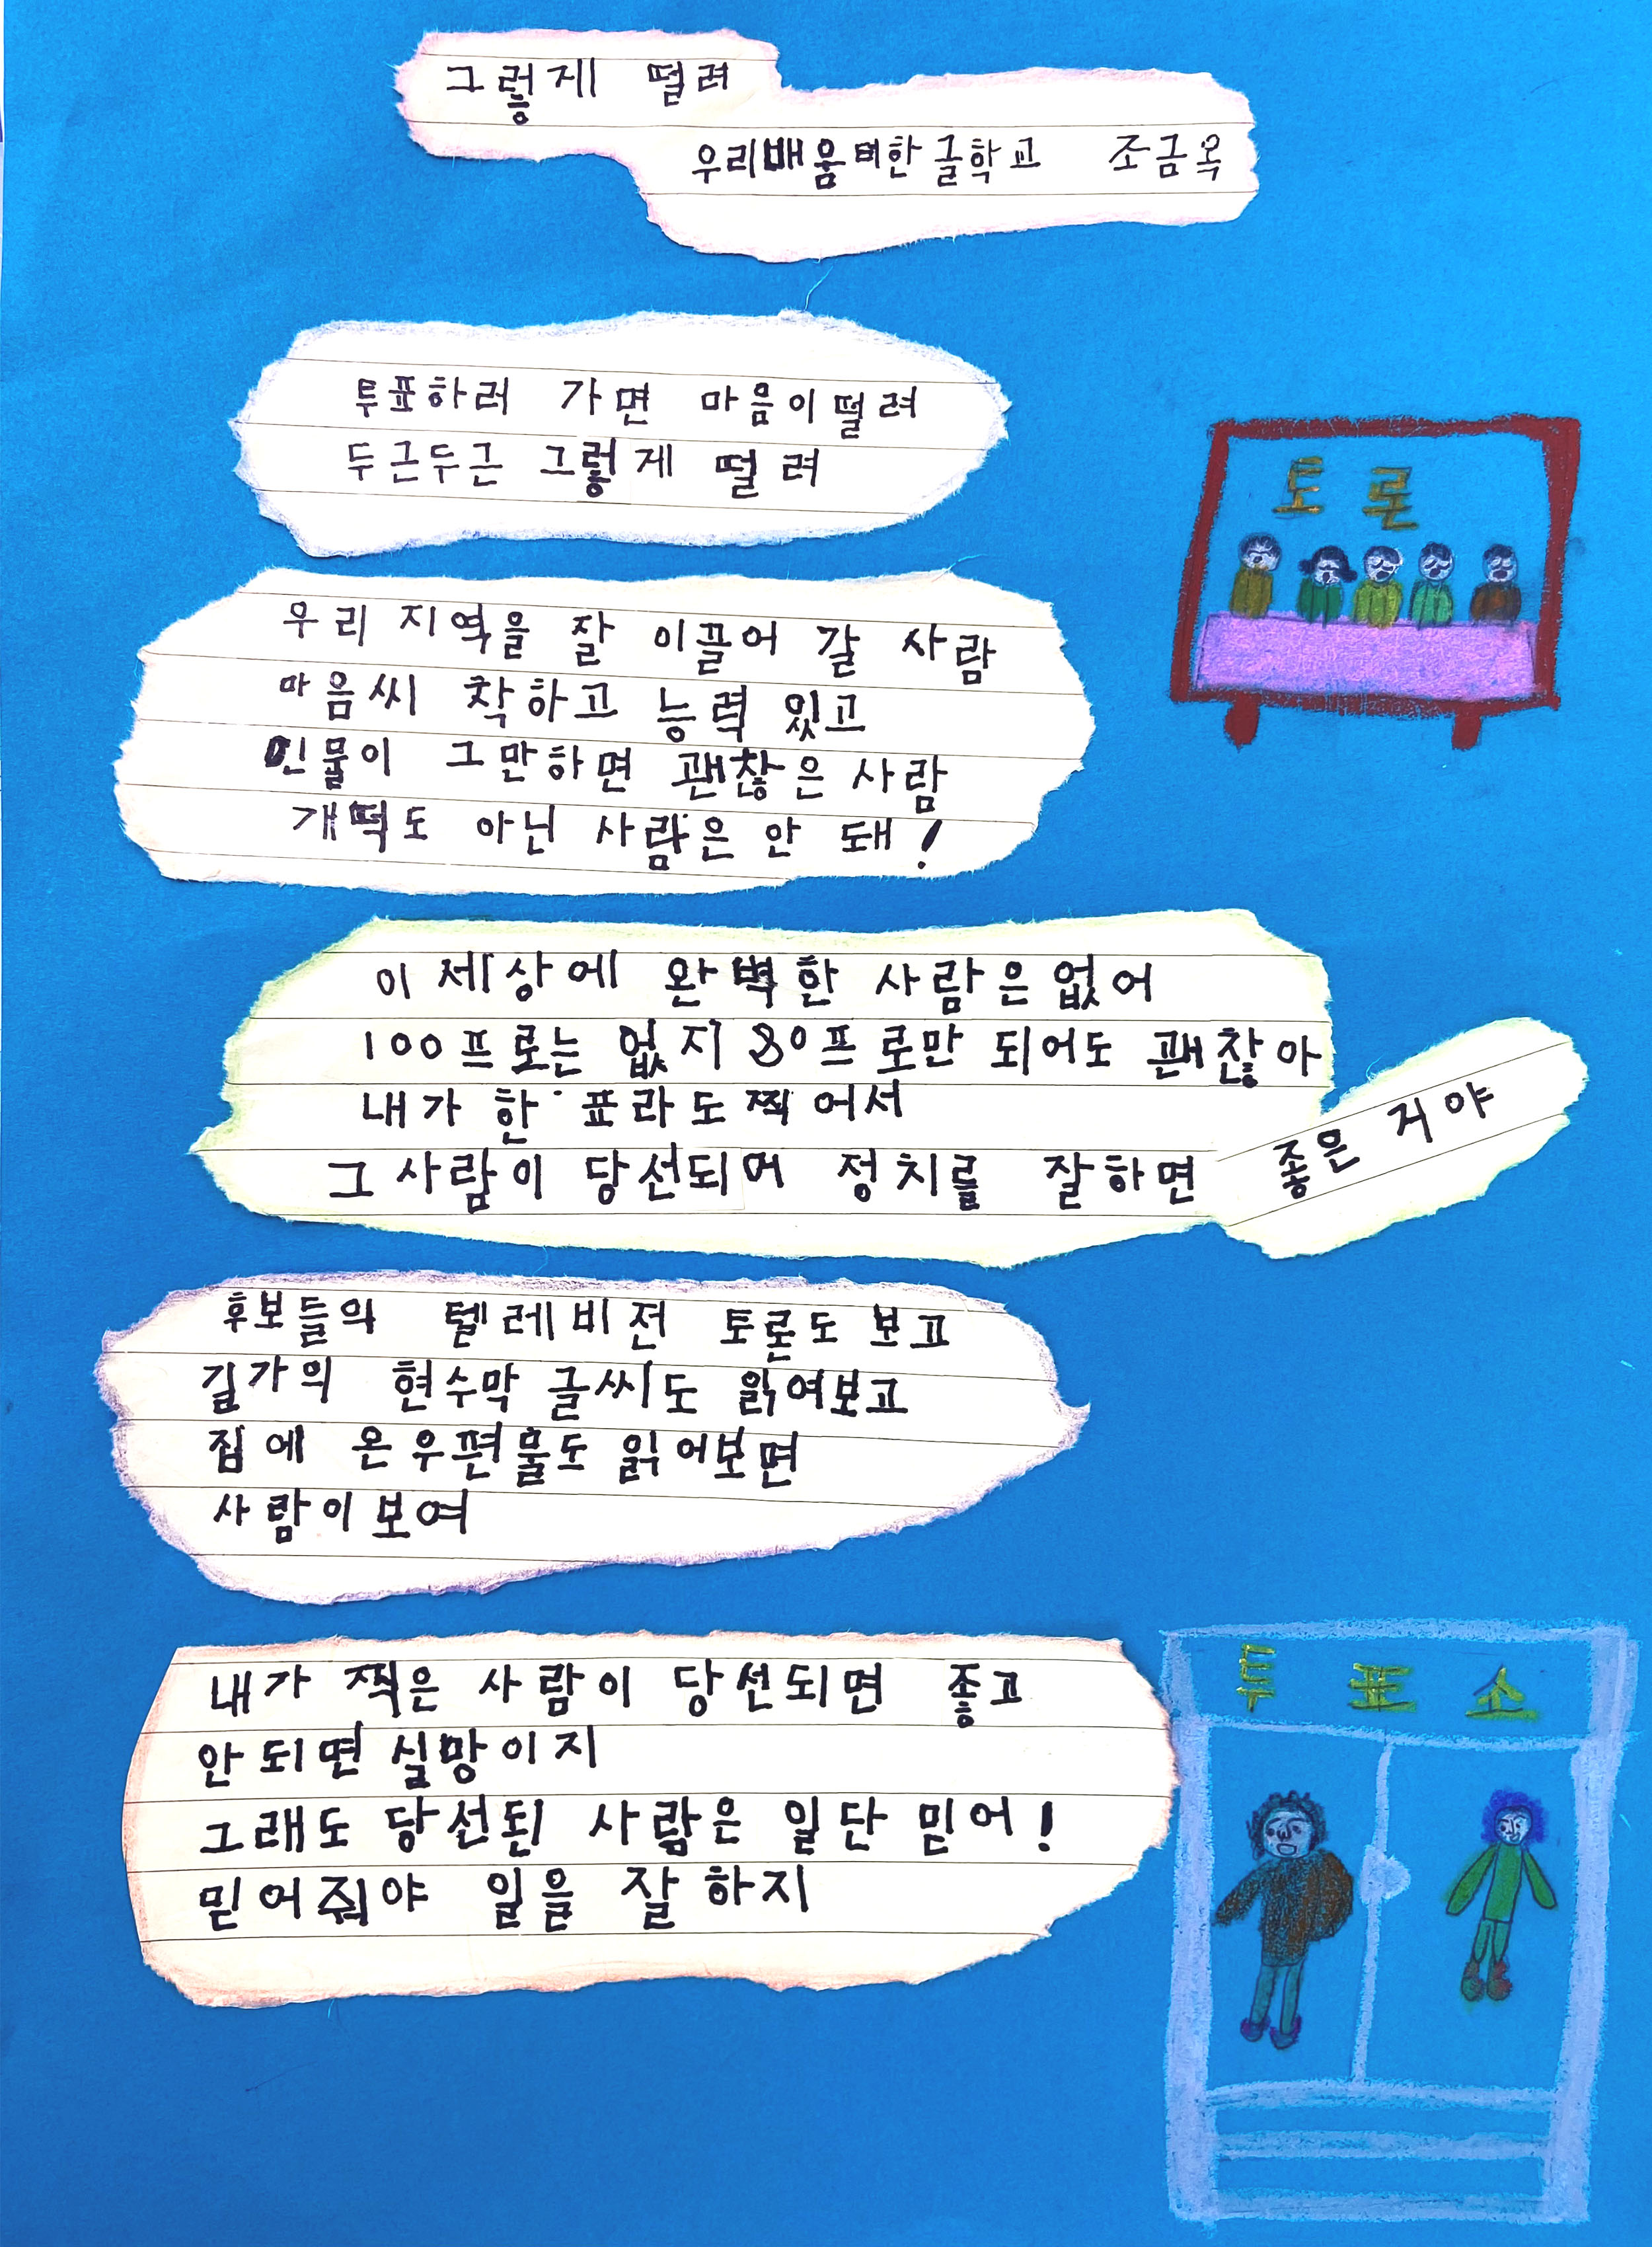 그렇게 떨려
우리배움터한글학교 조금옥
투표하러 가면 마음이떨려
두근두근 그렇게 떨려
토론
우리 지역을 잘 이끌어 갈 사람
마음씨 착하고 능력 있고
인물이 그만하면 괜찮은 사람
개떡도 아닌 사람은 안 돼!
이 세상에 완벽한 사람은 없어
100프로는 없지 80프로만 되어도 괜찮아
내가 한 표라도 찍어서
그 사람이 당선되어 정치를 잘하면 좋은 거야
후보들의 텔레비전 토론도 보고
길가의 현수막 글씨도 읽여보고
집에 온 우편물도 읽어보면
사람이 보여
내가 찍은 사람이 당선되면 좋고
안 되면 실망이지
그래도 당선된 사람은 일단 믿어!
믿어줘야 일을 잘 하지
투표소